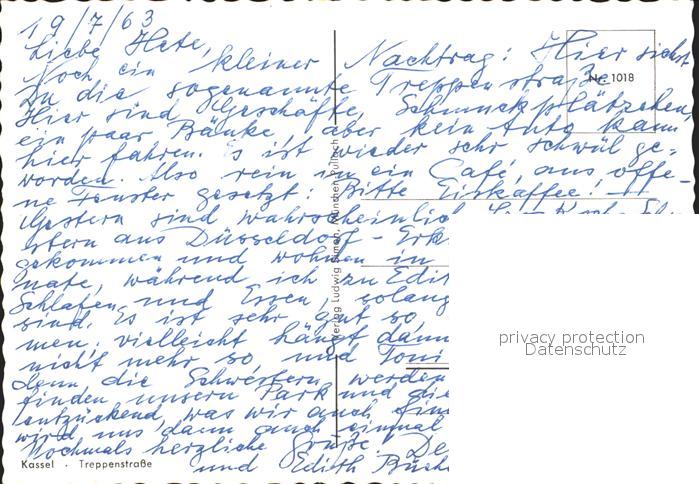 19/7/63
Liebe Hete,
Noch ein kleiner Nachtrag: Hier siehst
Du die sogenannte Treppenstraße.
Nr. 1018
Hier sind Geschäfte, Schmuckplätzchen,
ein paar Bänke, aber kein Auto kann
hier fahren. Es ist wieder sehr schwül ge-
worden. Also rein in ein Café, ans offe-
ne Fenster gesetzt: Bitte Eiskaffee! —
Gestern sind wahrscheinlich
stern aus Düsseldorf - Erk
gekommen und wohnen in
nate, während ich zu Edit
Schlafen und Essen, solang
sind. Es ist sehr gut so,
men; vielleicht hängt dann
nicht mehr so und Toni
Denn die Schwestern werden
finden unsern Park und die
entzückend, was wir auch fin
wird uns dann auch einmal
Nochmals herzliche Grüße! De
und Edith Büch
Kassel · Treppenstraße
Verlag Ludwig Simon, München-Pullach
privacy protection
Datenschutz